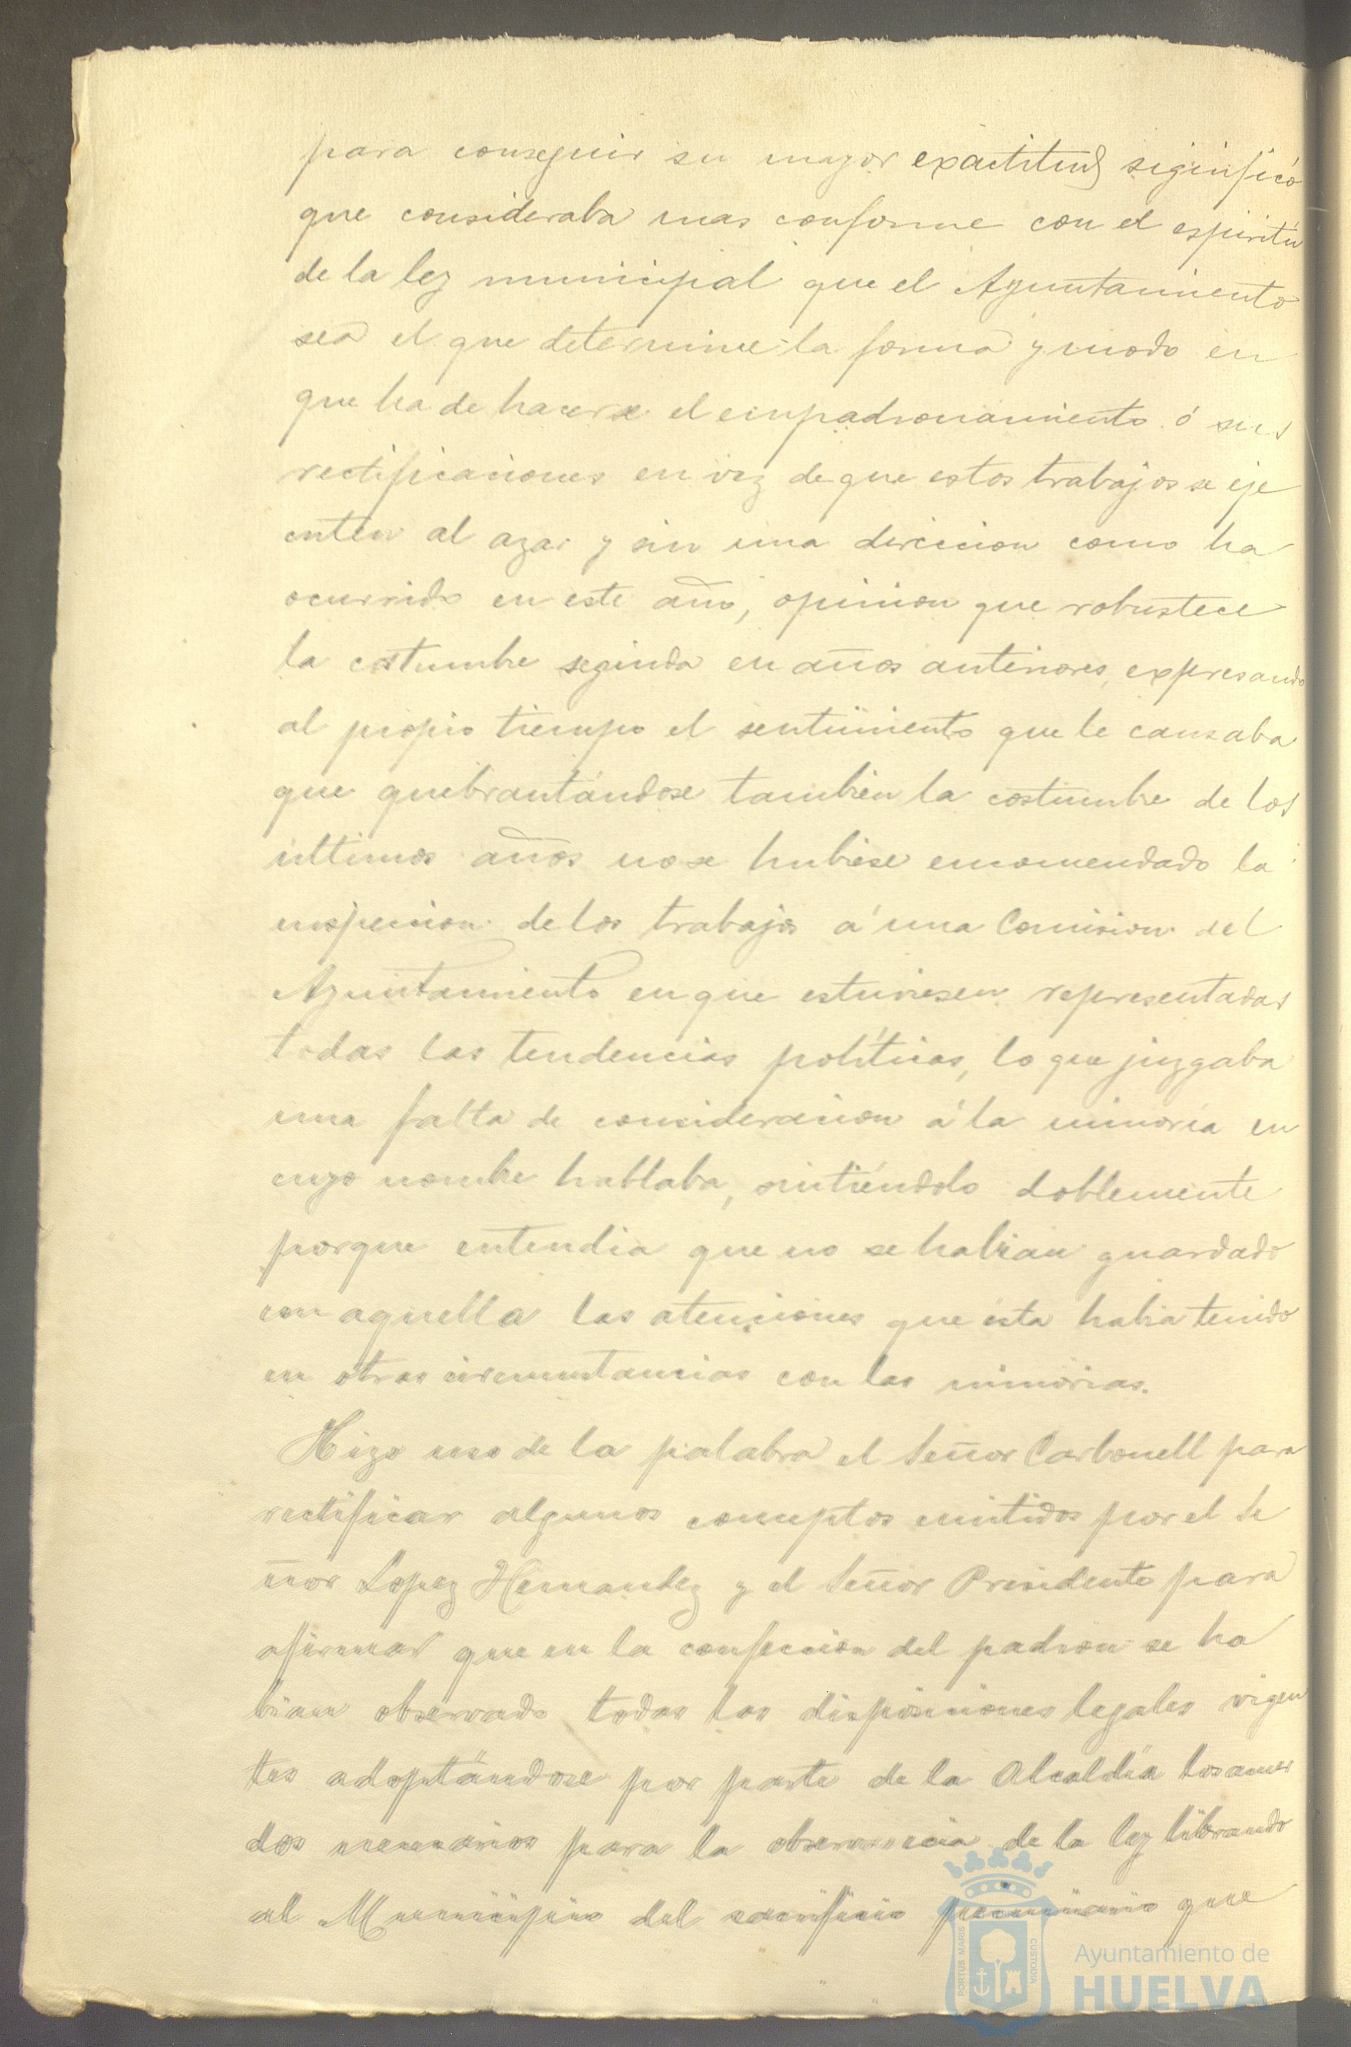 para conseguir su mayor exactitud siginificó
que consideraba mas conforme con el espiritu
de la ley municipal que el Ayuntamiento
sea el que determine la forma y modo en
que ha de hacerse el empadronamiento ó sus
rectificaciones en vez de que estos trabajos se eje
cuten al azar y sin una direccion como ha
ocurrido en este año, opinion que robustece
la costumbre seguida en años anteriores, expresando
al propio tiempo el sentimiento que le causaba
que quebrantándose tambien la costumbre de los
ultimos años no se hubiese encomendado la
inspeccion de los trabajos á una Comision del
Ayuntamiento en que estuviesen representadas
todas las tendencias políticas, lo que juzgaba
una falta de consideracion á la minoria en
cuyo nombre hablaba, sintiéndolo doblemente
porque entendia que no se habian guardado
con aquella las atenciones que esta habia tenido
en otras circunstancias con las minorias.
Hizo uso de la palabra el Señor Carbonell para
rectificar algunos conceptos emitidos por el Se
ñor Lopez Hernandez y el Señor Presidente para
afirmar que en la confeccion del padron se ha
bian observado todas las disposiciones legales vigen
tes adoptándose por parte de la Alcaldía los acuer
dos necesarios para la observancia de la ley librando
al Municipio del sacrificio pecuniario que
PORTUS MARIS CUSTODIA
Ayuntamiento de
HUELVA